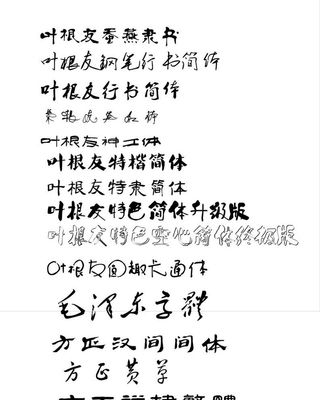 叶根友蚕燕隶书
叶根友钢笔行书简体
叶根友行书简体
叶根友神工体
叶根友特楷简体
叶根友特隶简体
叶根友特色简体升级版
叶根友特色空心简体终极版
叶根友圆趣卡通体
毛泽东字體
方正汉间间体
方正黄草